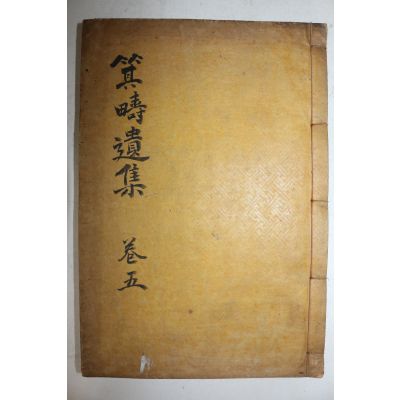 箕疇遺集
卷五